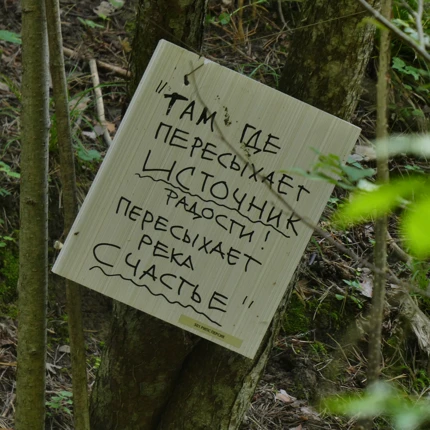 "ТАМ ГДЕ
ПЕРЕСЫХАЕТ
ИСТОЧНИК
РАДОСТИ!
ПЕРЕСЫХАЕТ
РЕКА
СЧАСТЬЕ"